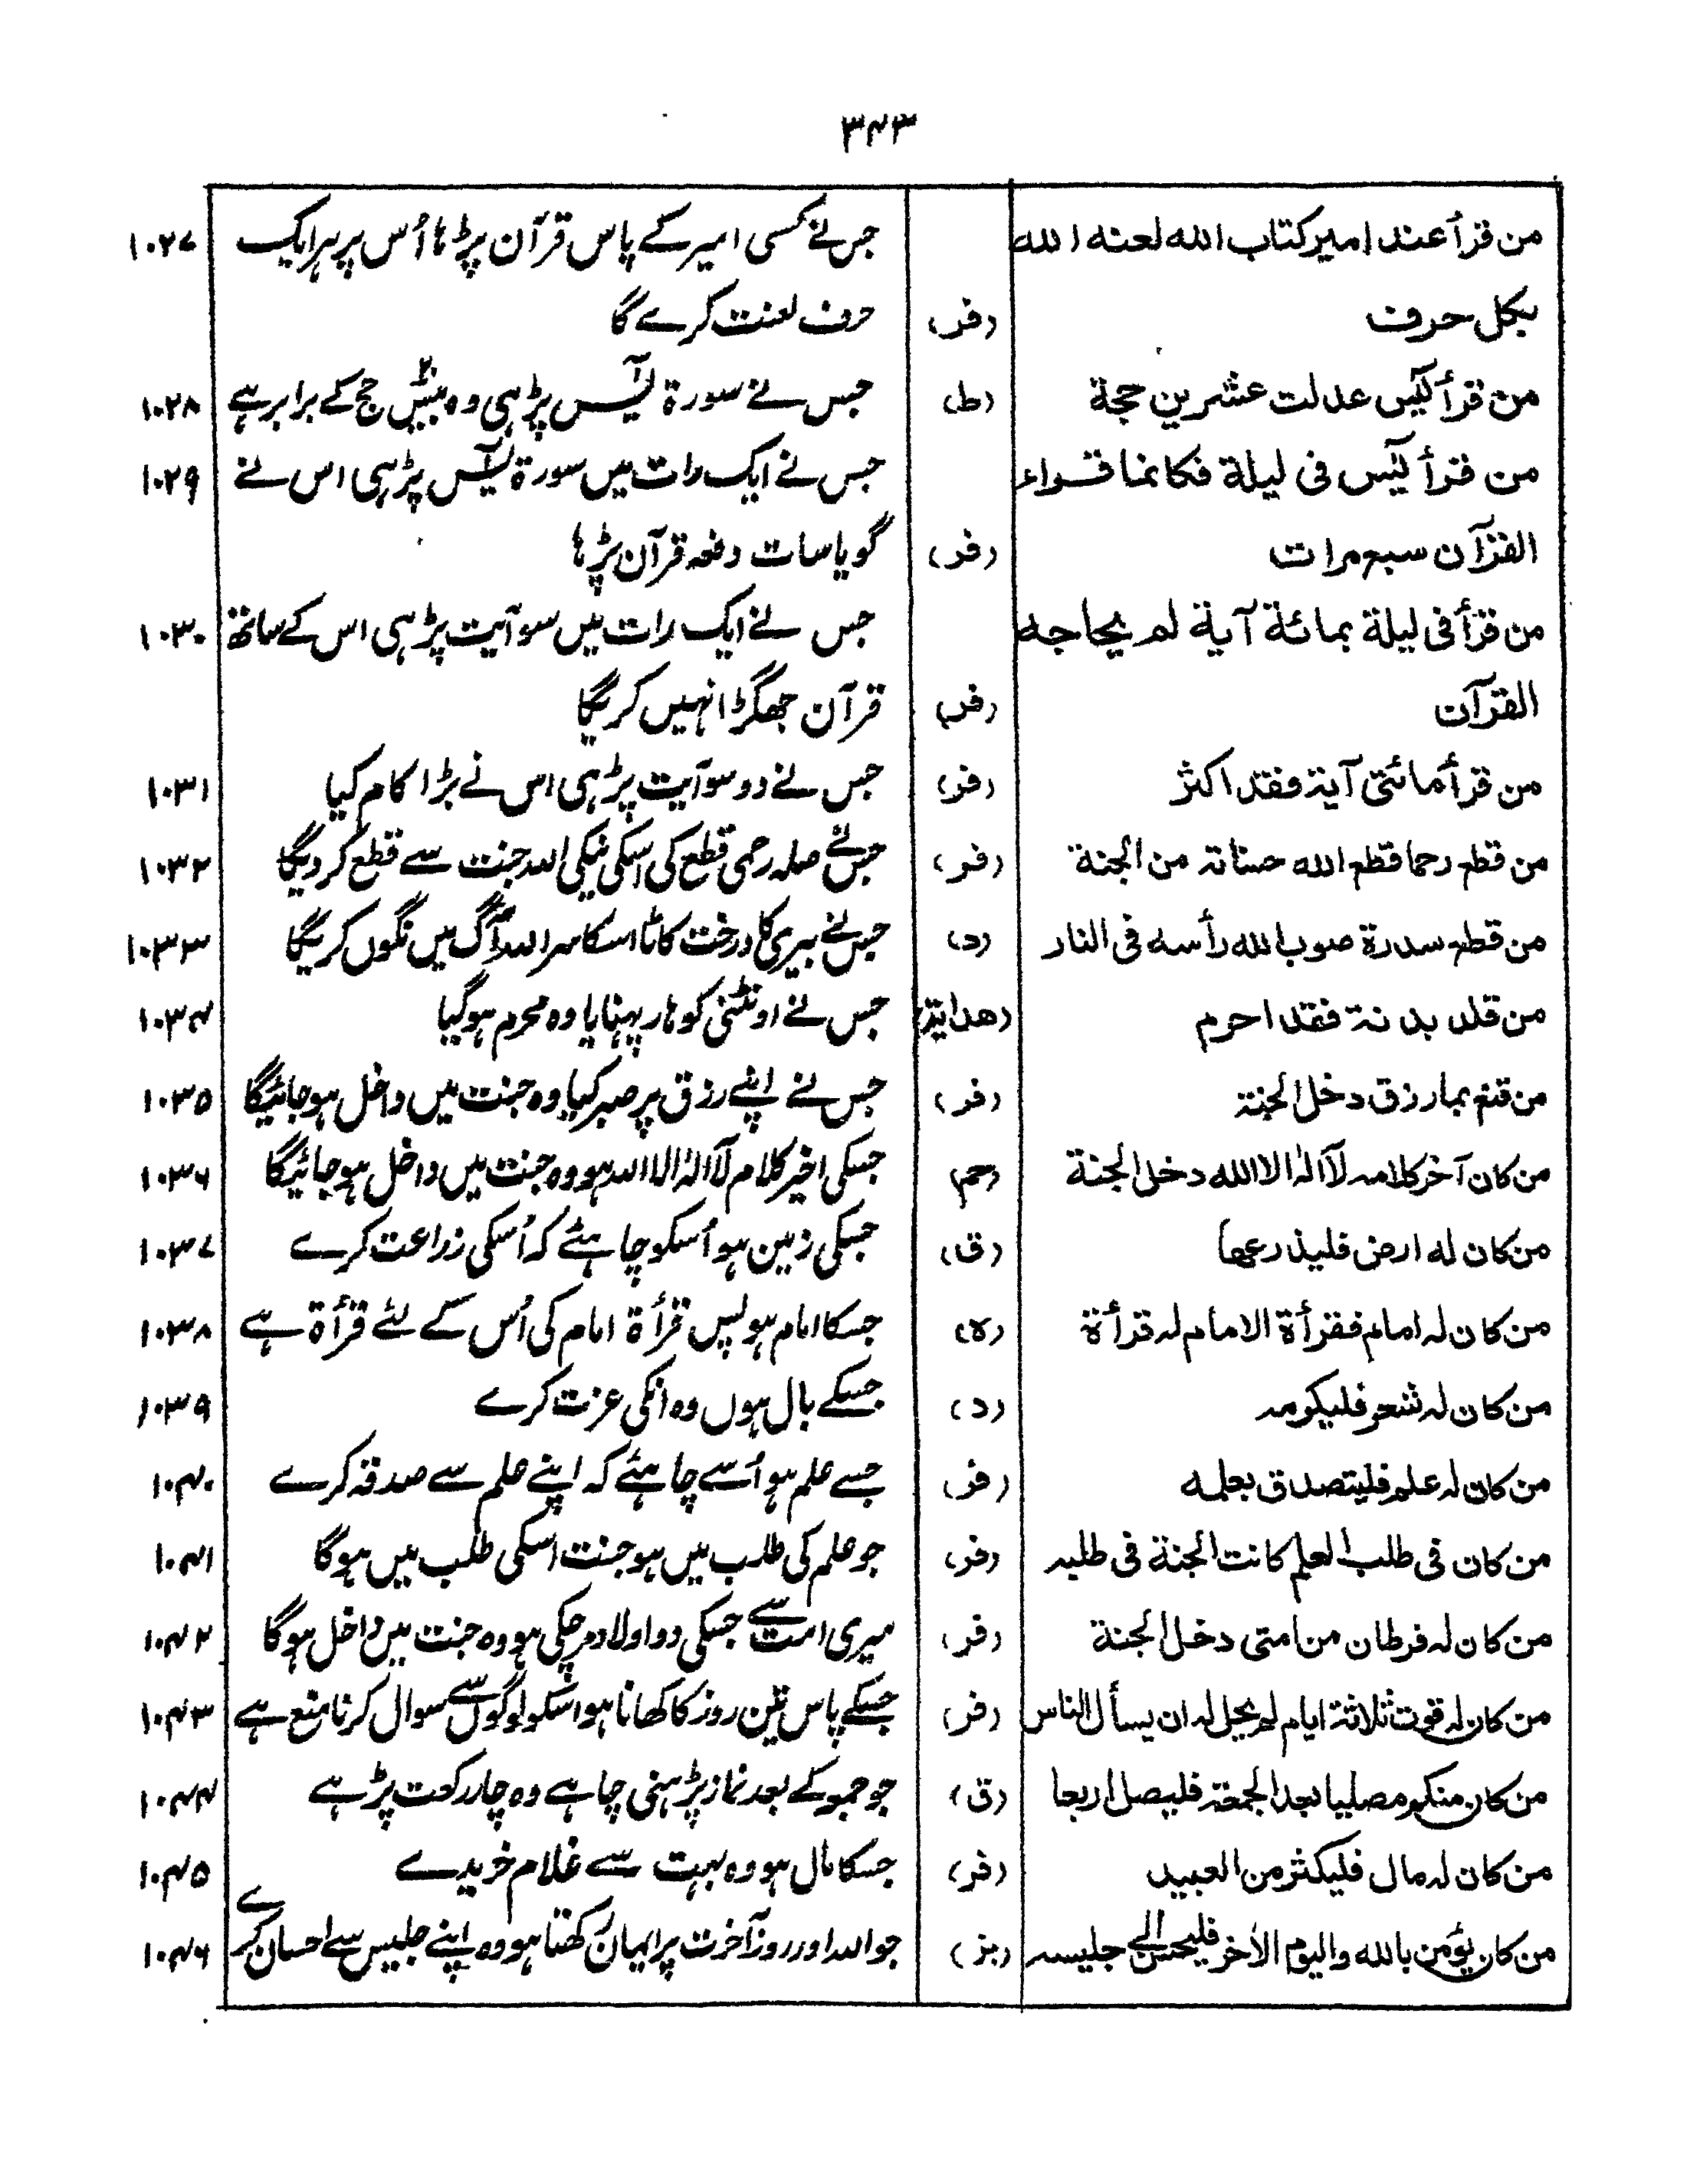 ۳۴۳
من قرأ عند امیر کتاب الله لعنه الله جس نے کسی امیر کے پاس قرآن پڑہا اُس پر ہر ایک ۱۰۲۷
بکل حرف (فر) حرف لعنت کرے گا
من قرأ یٰس عدلت عشرین حجة (ط) جس نے سورۃ یٰس پڑہی وہ بیس حج کے برابر ہے ۱۰۲۸
من قرأ یٰس فی لیلة فکانما قراء جس نے ایک رات میں سورۃ یٰس پڑہی اس نے ۱۰۲۹
القرآن سبع مرات (فر) گویا سات دفعہ قرآن پڑہا
من قرأ فی لیلة بمائة آیة لم یحاجه جس نے ایک رات میں سو آیت پڑہی اس کے ساتھ ۱۰۳۰
القرآن (فر) قرآن جھگڑا نہیں کریگا
من قرأ مائتی آیة فقد اکثر (فر) جس نے دو سو آیت پڑہی اس نے بڑا کام کیا ۱۰۳۱
من قطع رحما قطع الله حسناته من الجنة (فر) جسنے صلہ رحمی قطع کی اسکی نیکی اللہ جنت سے قطع کر دیگا ۱۰۳۲
من قطع سدرة صوب الله رأسه فی النار (د) جسنے بیری کا درخت کاٹا اسکا سر اللہ آگ میں نگوں کریگا ۱۰۳۳
من قلد بدنة فقد احرم (هدایة) جس نے اونٹنی کو ہار پہنایا وہ محرم ہوگیا ۱۰۳۴
من قنع بما رزق دخل الجنة (فر) جس نے اپنے رزق پر صبر کیا وہ جنت میں داخل ہو جائیگا ۱۰۳۵
من کان آخر کلامه لآ الٰه الا الله دخل الجنة (حم) جسکی اخیر کلام لآ الٰہ الا اللہ ہو وہ جنت میں داخل ہو جائیگا ۱۰۳۶
من کان له ارض فلیذرعها (ق) جسکی زمین ہو اُسکو چاہئے کہ اُسکی زراعت کرے ۱۰۳۷
من کان له امام فقرأة الامام له قرأة (ہ) جسکا امام ہو پس قرأۃ امام کی اُس کے لئے قرأۃ ہے ۱۰۳۸
من کان له شعر فلیکرمه (د) جسکے بال ہوں وہ انکی عزت کرے ۱۰۳۹
من کان له علم فلیتصدق بعلمه (فر) جسے علم ہو اُسے چاہئے کہ اپنے علم سے صدقہ کرے ۱۰۴۰
من کان فی طلب العلم کانت الجنة فی طلبه (فر) جو علم کی طلب میں ہو جنت اسکی طلب میں ہوگا ۱۰۴۱
من کان له فرطان من امتی دخل الجنة (فر) میری امت سے جسکی دو اولاد مر چکی ہو وہ جنت میں داخل ہوگا ۱۰۴۲
من کان له قوت ثلاثة ایام لم یحل له ان یسأل الناس (فر) جسکے پاس تین روز کا کھانا ہو اسکو لوگوں سے سوال کرنا منع ہے ۱۰۴۳
من کان منکم مصلیا بعد الجمعة فلیصل اربعا (ق) جو جمعہ کے بعد نماز پڑہنی چاہے وہ چار رکعت پڑہے ۱۰۴۴
من کان له مال فلیکثر من العبید (فر) جسکا مال ہو وہ بہت سے غلام خریدے ۱۰۴۵
من کان یؤمن بالله والیوم الاٰخر فلیحسن الی جلیسه (بز) جو اللہ اور روز آخرت پر ایمان رکھتا ہو وہ اپنے جلیس سے احسان کرے ۱۰۴۶